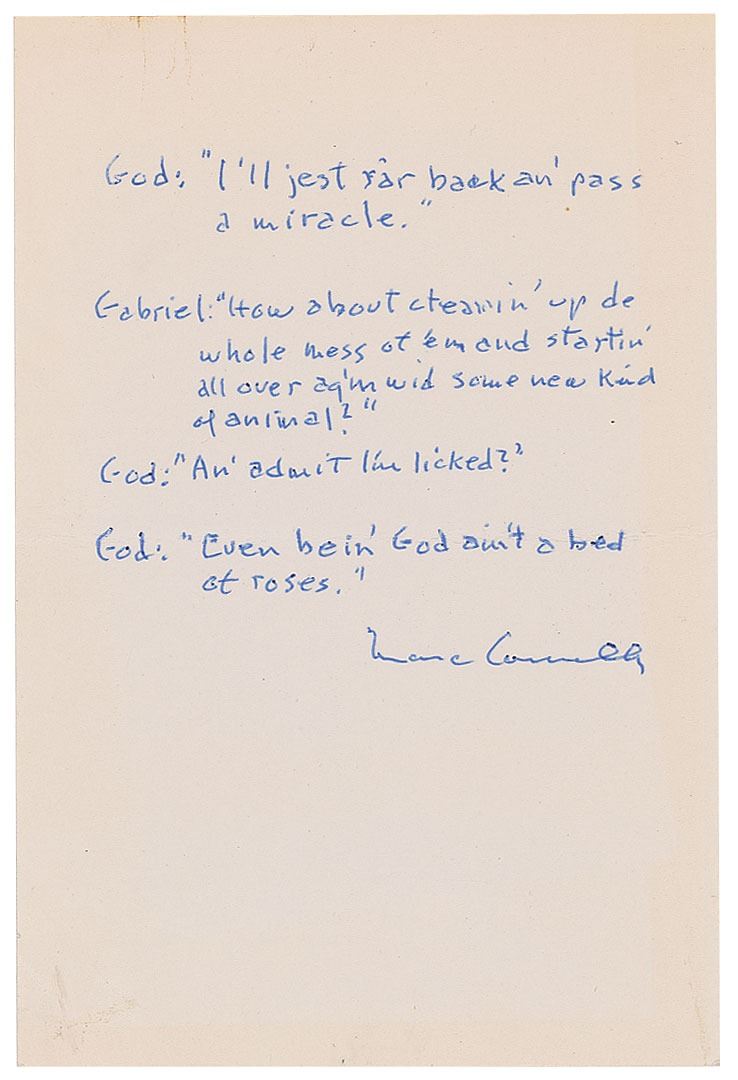 God: "I'll jest r'ar back an' pass
a miracle."
Gabriel: "How about cleanin' up de
whole mess of 'em and startin'
all over ag'in wid some new kind
of animal?"
God: "An' admit I'm licked?"
God: "Even bein' God ain't a bed
of roses."
Marc Connelly